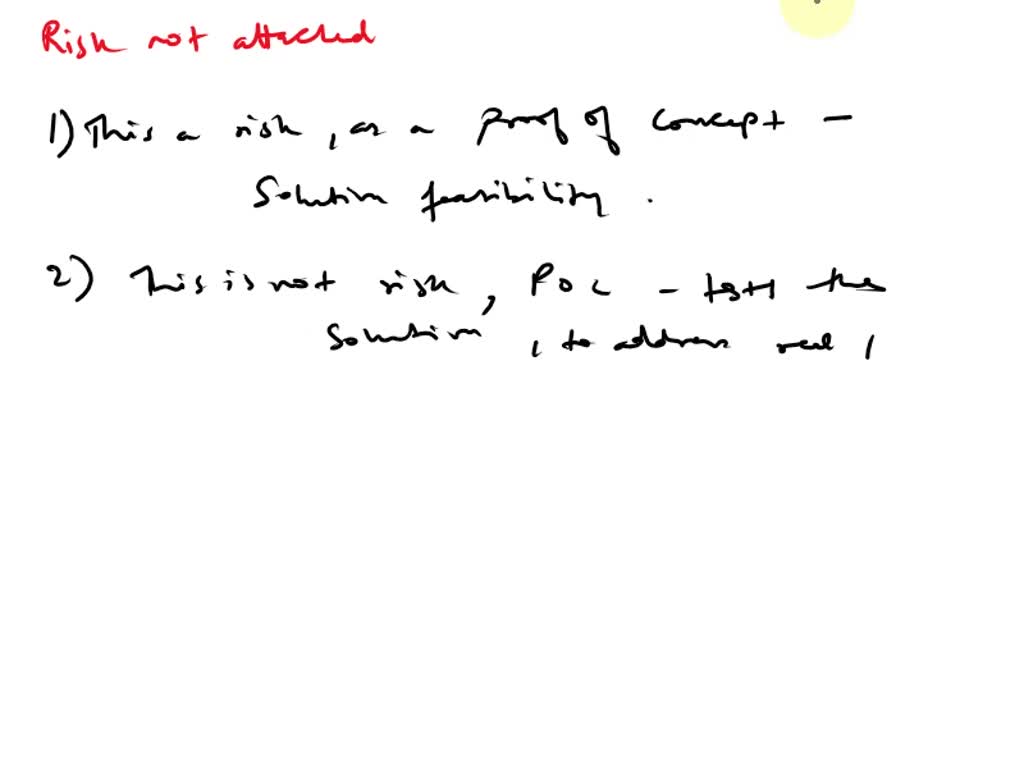 Risk not attached
1) This a risk, as a proof of concept -
Solution feasibility.
2) This is not risk, POC - tests the
solution, to address real